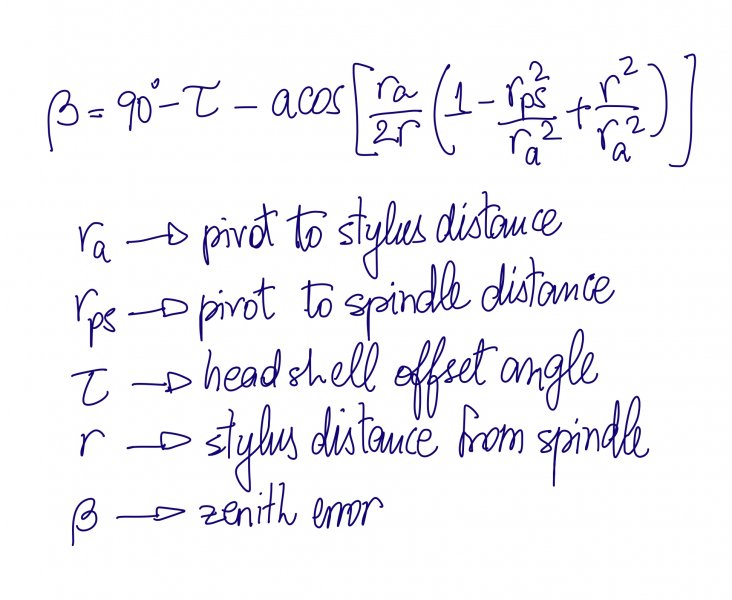 β = 90° - τ - acos[ra/2r (1 - rps²/ra² + r²/ra²)]
ra → pivot to stylus distance
rps → pivot to spindle distance
τ → headshell offset angle
r → stylus distance from spindle
β → zenith error